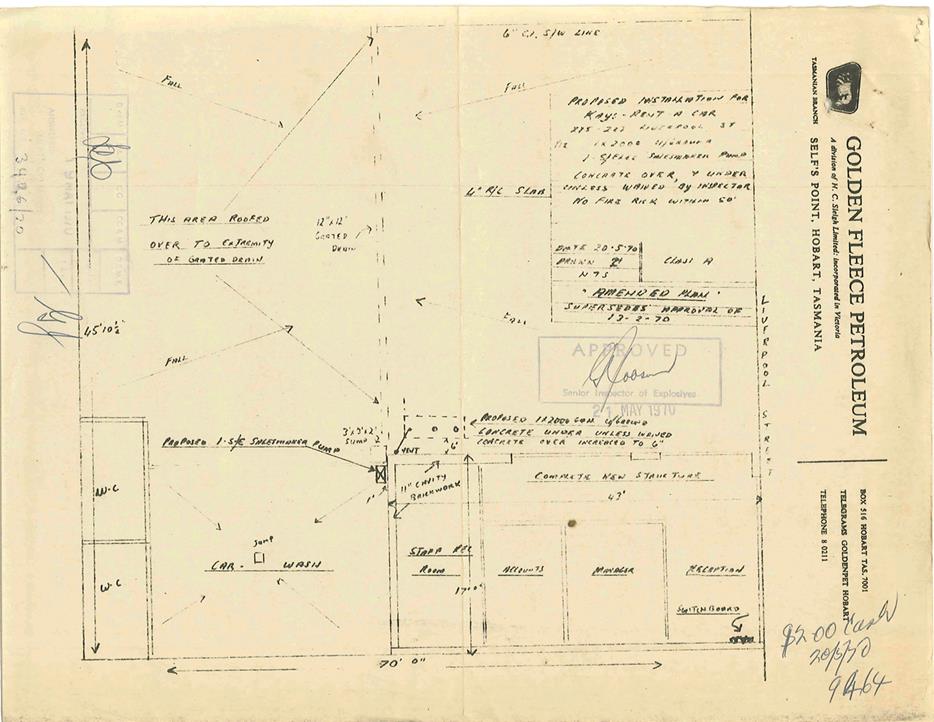 6" C.I. S/W LINE
FALL
FALL
PROPOSED INSTALLATION FOR
KAYS - RENT A CAR
LIVERPOOL ST
1 X 2000
1-S/ELEC SALESMAKER PUMP
CONCRETE OVER, & UNDER
UNLESS WAIVED BY INSPECTOR
NO FIRE RISK WITHIN 50'
4" R/C SLAB
DATE 20.5.70
DRAWN
NTS
CLASS A
"AMENDED PLAN"
SUPERSEDES APPROVAL OF
13-2-70
THIS AREA ROOFED
OVER TO EXTREMITY
OF GRATED DRAIN
12"X12"
GRATED
DRAIN
45' 10½"
FALL
FALL
APPROVED
Senior Inspector of Explosives
21 MAY 1970
LIVERPOOL STREET
PROPOSED 1X2000 GALL U/GROUND
CONCRETE UNDER UNLESS WAIVED
CONCRETE OVER INCREASED TO 6"
PROPOSED 1-S/E SALESMAKER PUMP
3'X3'X2'
SUMP
VENT
6"
1"
11" CAVITY
BRICKWORK
COMPLETE NEW STRUCTURE
43'
W.C
W.C
SUMP
CAR - WASH
STAFF REC
ROOM
17' 0"
ACCOUNTS
MANAGER
RECEPTION
SWITCHBOARD
70' 0"
GOLDEN FLEECE PETROLEUM
A division of H. C. Sleigh Limited: incorporated in Victoria
TASMANIAN BRANCH
SELF'S POINT, HOBART, TASMANIA
BOX 516 HOBART TAS. 7001
TELEGRAMS GOLDENPET HOBART
TELEPHONE 8 0211
$2.00 Cash
20/5/70
3426/70